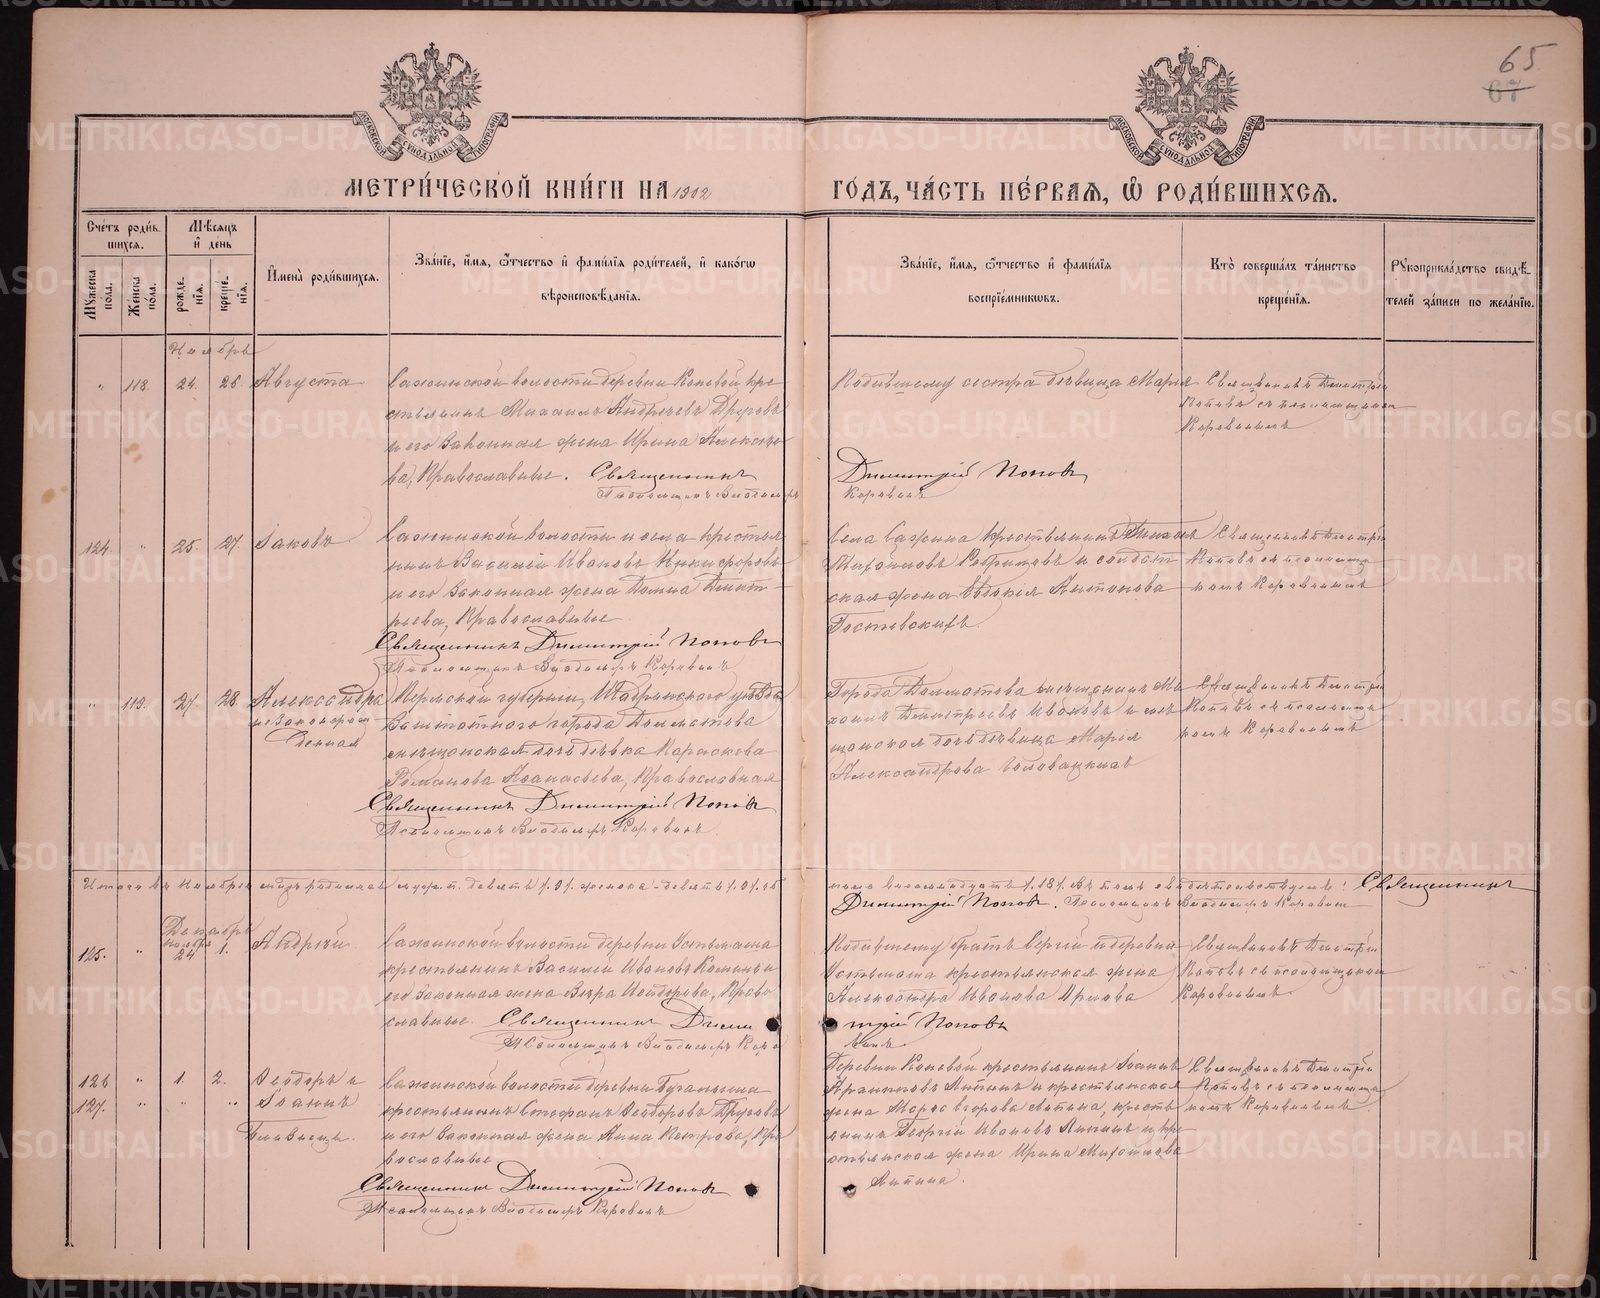 65
67
МОСКОВСКОЙ СѴНОДАЛЬНОЙ ТИПОГРАФІИ
МОСКОВСКОЙ СѴНОДАЛЬНОЙ ТИПОГРАФІИ
МЕТРИ́ЧЕСКОЙ КНИ́ГИ НА 1902
ГО́ДЪ, ЧА́СТЬ ПЕ́РВАЯ, Ѽ РОДИ́ВШИХСЯ.
Сче́тъ роди́в
шихся.
Мѣ́сяцъ
и҆ день
Му́жеска
пола.
Же́нска
пола.
рожде-
нїя.
креще́-
нїя.
И҆мена̀ роди́вшихся.
Зва́нїе, и҆́мя, ѻ҆́тчество и҆ фами́лїя роди́телей, и҆ како́гѡ
вѣроисповѣ́данїя.
Зва́нїе, и҆́мя, ѻ҆́тчество и҆ фами́лїя
воспрїе́мникѡвъ.
Кто̀ соверша́лъ та́инство
креще́нїя.
Рꙋкоприкла́дство свидѣ́-
телей за́писи по жела́нїю.
Ноябрь
" 118. 24. 28. Августа
Сажинской волости деревни Коневой, кре
стьянинъ Михаилъ Андреевъ Друговъ
и его законная жена Ирина
ва, Православные. Священникъ
Псаломщикъ Владимиръ
Родившему сестра девица Марія
Димитрій Поповъ
Коровинъ
Священникъ Димитрій
Поповъ съ псаломщикомъ
Коровинымъ
124. " 25. 27. Іаковъ
Сажинской волости и села крестья
нинъ Василій Ивановъ Никифоровъ
и его законная жена Домна Димит-
ріева, Православные
Священникъ Димитрій Поповъ
Псаломщикъ Владимиръ Коровинъ
Села Сажина крестьянинъ
и солдат
ская жена Евдокія Антонова
Священникъ Димитрій
Поповъ съ псаломщи
комъ Коровинымъ
" 119. 27. 28. Александра
незаконорож
денная
Пермской губерніи, Шадринскаго уѣзда
Заштатного города Далматова
мещанская дочь девка
Романова Афанасьева, Православная
Священникъ Димитрій Поповъ
Псаломщикъ Владимиръ Коровинъ
Города Далматова мещанинъ Ми
хаилъ Димитріевъ Ивановъ и ме
щанская дочь девица Марія
Александрова
Священникъ Димитрій
Поповъ съ псаломщи
комъ Коровинымъ
Итого въ Ноябре сихъ родилось мужс. п. девять /9/ женска - девять /9/
восемнадцать /18/ въ томъ свидетельствуемъ: Священникъ
Димитрій Поповъ. Псаломщикъ Владимиръ Коровинъ
Декабрь
ноябрь
125. " 24 1. Андрей
Сажинской волости деревни Устьмаша
крестьянинъ Василій Ивановъ и
его законная жена Вера Исидорова, Право
славные. Священникъ Дими
Псаломщикъ Владимиръ Коро
Родившему братъ Сергій и деревни
Устьмаша крестьянская жена
Александра Иванова Орлова
трій Поповъ
винъ.
Священникъ Димитрій
Поповъ съ псаломщикомъ
Коровинымъ.
126 " 1. 2. Ѳеодоръ и
127. " " " Іоаннъ
Близнецы.
Сажинской волости деревни Бугалыша
крестьянинъ Стефанъ Ѳеодоровъ Друговъ
и его законная жена Анна Петрова, Пра
вославные
Священникъ Димитрій Поповъ
Псаломщикъ Владимиръ Коровинъ
Деревни Коневой крестьянинъ Іоаннъ
и крестьянская
жена, кресть
янинъ Георгій Ивановъ и кре
стьянская жена Ирина Михайлова
Священникъ Димитрій
Поповъ съ псаломщи
комъ Коровинымъ
METRIKI.GASO-URAL.RU